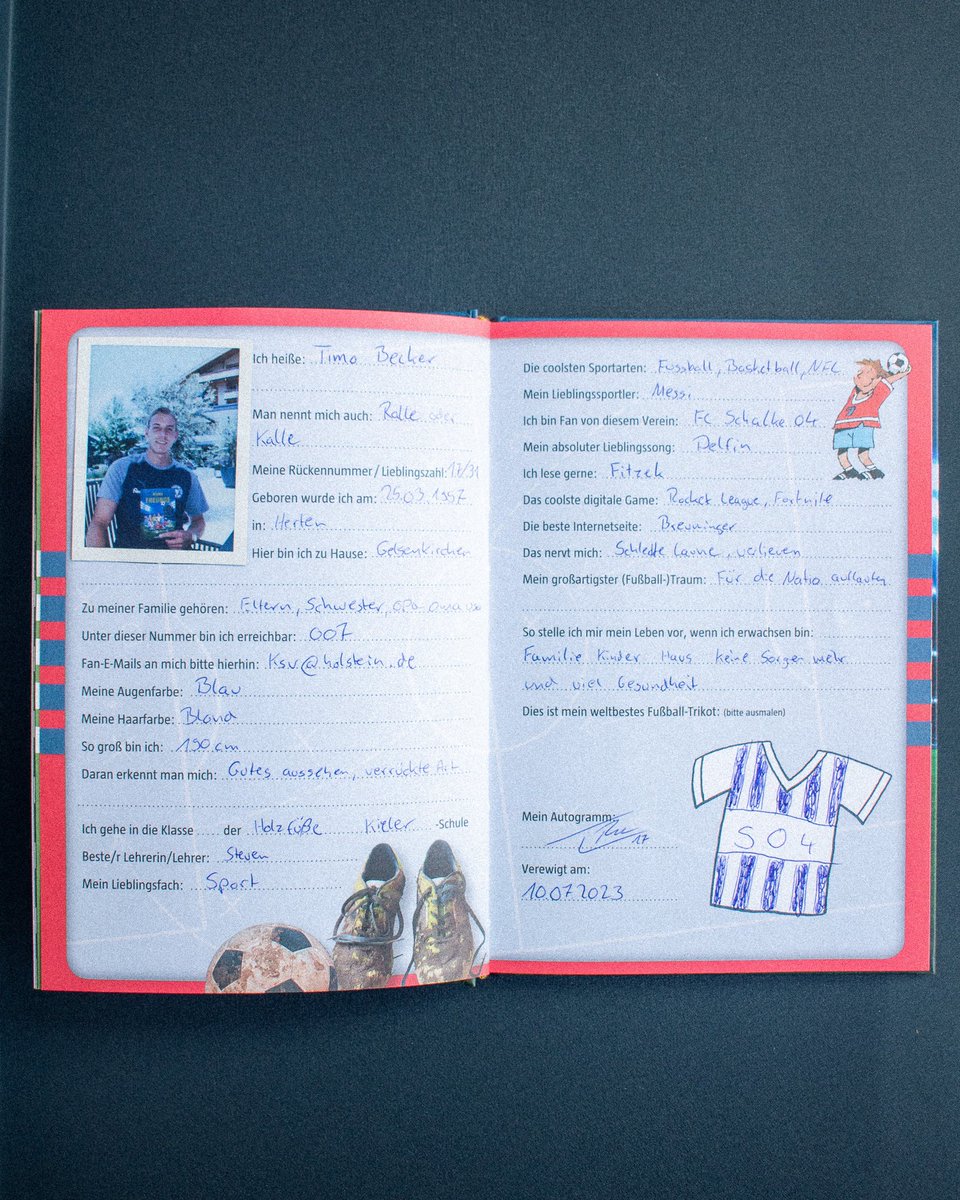 Ich heiße: Timo Becker
Man nennt mich auch: Kalle oder
Kalle
Meine Rückennummer / Lieblingszahl: 17/31
Geboren wurde ich am: 25.03.1997
in: Herten
Hier bin ich zu Hause: Gelsenkirchen
Zu meiner Familie gehören: Eltern, Schwester, Opa Oma usw
Unter dieser Nummer bin ich erreichbar: 007
Fan-E-Mails an mich bitte hierhin: Ksv@holstein.de
Meine Augenfarbe: Blau
Meine Haarfarbe: Blond
So groß bin ich: 190 cm
Daran erkennt man mich: Gutes aussehen, verrückte Art
Ich gehe in die Klasse der Holzfüße Kieler -Schule
Beste/r Lehrerin/Lehrer: Steven
Mein Lieblingsfach: Sport
Die coolsten Sportarten: Fussball, Basketball, NFL
Mein Lieblingssportler: Messi
Ich bin Fan von diesem Verein: FC Schalke 04
Mein absoluter Lieblingssong: Delfin
Ich lese gerne: Fitzek
Das coolste digitale Game: Rocket League, Fortnite
Die beste Internetseite: Breuninger
Das nervt mich: Schlechte Laune, verlieren
Mein großartigster (Fußball-)Traum: Für die Natio auflaufen
So stelle ich mir mein Leben vor, wenn ich erwachsen bin:
Familie Kinder Haus keine Sorgen mehr
und viel Gesundheit
Dies ist mein weltbestes Fußball-Trikot: (bitte ausmalen)
S04
Mein Autogramm:
17
Verewigt am:
10.07.2023